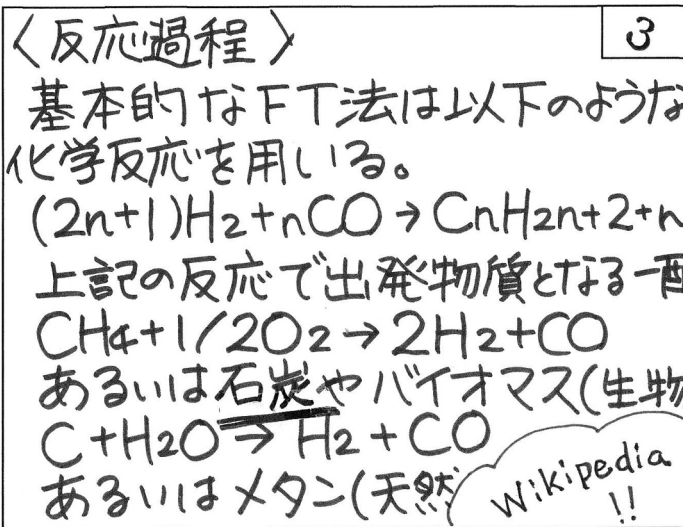 〈反応過程〉
3
基本的なFT法は以下のような
化学反応を用いる。
(2n+1)H2+nCO→CnH2n+2+n
上記の反応で出発物質となる一
CH4+1/2O2→2H2+CO
あるいは石炭やバイオマス(生物
C+H2O→H2+CO
あるいはメタン(天然
Wikipedia
!!